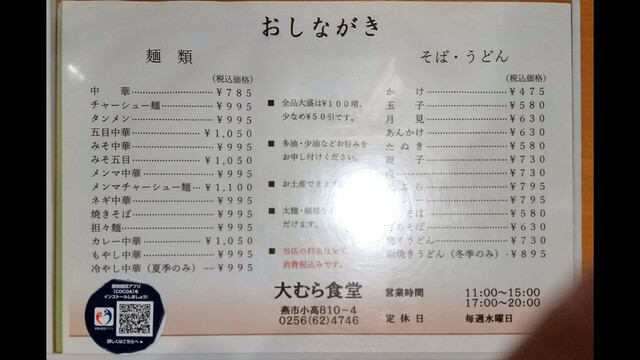 おしながき
麺類
(税込価格)
中華 ¥785
チャーシュー麺 ¥995
タンメン ¥995
五目中華 ¥1,050
みそ中華 ¥995
みそ五目 ¥1,050
メンマ中華 ¥995
メンマチャーシュー麺 ¥1,100
ネギ中華 ¥995
焼きそば ¥995
担々麺 ¥995
カレー中華 ¥1,050
もやし中華 ¥995
冷やし中華(夏季のみ) ¥995
■ 全品大盛は¥100増、
少なめ¥50引です。
■ 多油・少油などお好みを
お申し付けください。
■ お土産できます
■ 太麺・細麺を
だけます。
■ 当店の料金は全て
消費税込みです。
そば・うどん
(税込価格)
かけ ¥475
玉子 ¥580
月見 ¥630
あんかけ ¥630
たぬき ¥730
親子 ¥730
肉 ¥730
ぷら ¥795
ー ¥795
そば ¥580
そば ¥630
うどん ¥730
焼きうどん(冬季のみ) ¥895
大むら食堂
燕市小高810-4
0256(62)4746
営業時間 11:00〜15:00
17:00〜20:00
定休日 毎週水曜日
接触確認アプリ
(COCOA)を
インストールしましょう!
接触確認アプリ
詳しくはこちらへ▲